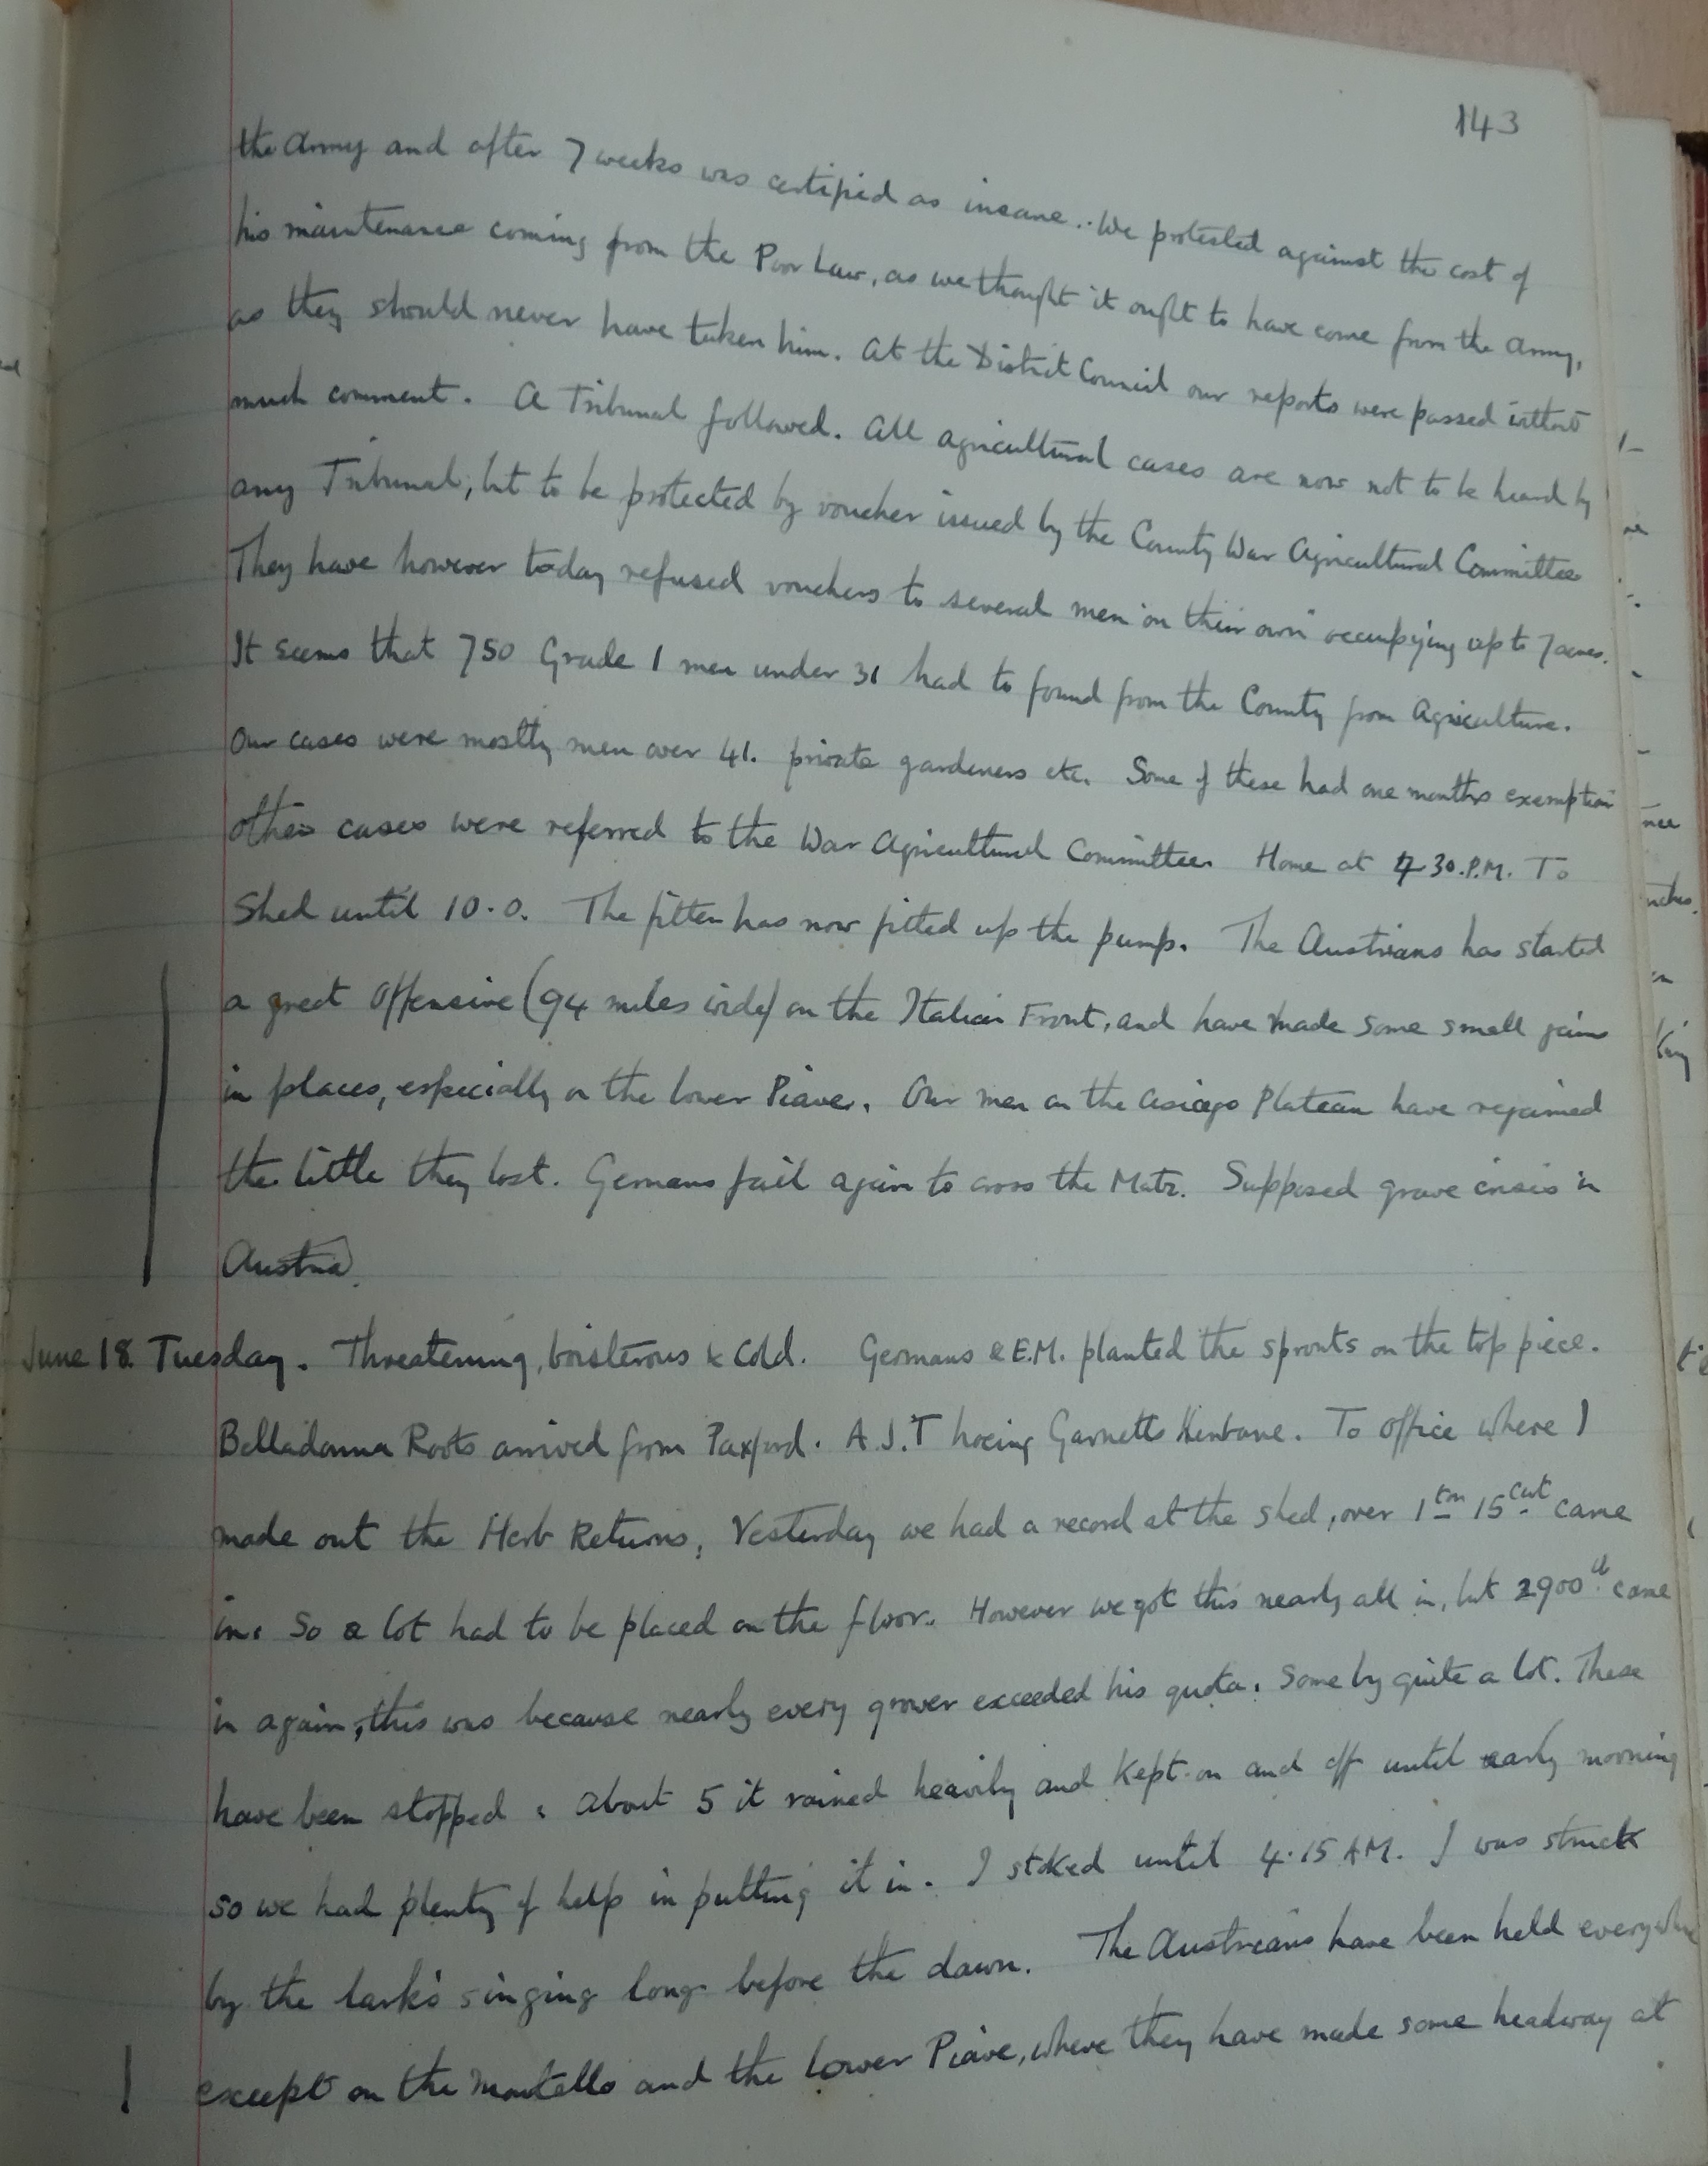 143
the Army and after 7 weeks was certified as insane. We protested against the cost of
his maintenance coming from the Poor Law, as we thought it ought to have come from the Army,
as they should never have taken him. At the District Council our reports were passed without
much comment. A Tribunal followed. All agricultural cases are now not to be heard by
any Tribunal, but to be protected by voucher issued by the County War Agricultural Committee
They have however today refused vouchers to several men "on their own" occupying up to 7 acres.
It seems that 750 Grade 1 men under 31 had to found from the County from Agriculture.
Our cases were mostly men over 41. private gardeners etc. Some of these had one months exemption
other cases were referred to the War Agricultural Committee. Home at 7.30.P.M. To
Shed until 10.0. The fitter has now fitted up the pump. The Austrians has started
a great Offensive (94 miles wide) on the Italian Front, and have made some small gains
in places, especially on the lower Piave. Our men on the Asiago Plateau have regained
the little they lost. Germans fail again to cross the Matz. Supposed grave crisis in
Austria.
June 18. Tuesday. Threatening, boisterous & Cold. Germans & E.M. planted the sprouts on the top piece.
Belladonna Roots arrived from Paxford. A.J.T hoeing Garnetts Henbane. To Office where I
made out the Herb Returns. Yesterday we had a record at the shed, over 1 ton 15 cwt came
in. So a lot had to be placed on the floor. However we got this nearly all in, but 2900 lb came
in again, this was because nearly every grower exceeded his quota. Some by quite a lot. These
have been stopped. About 5 it rained heavily and kept on and off until early morning
so we had plenty of help in putting it in. I stoked until 4.15 AM. I was struck
by the lark's singing long before the dawn. The Austrians have been held everywhere
except on the Montello and the lower Piave, where they have made some headway at